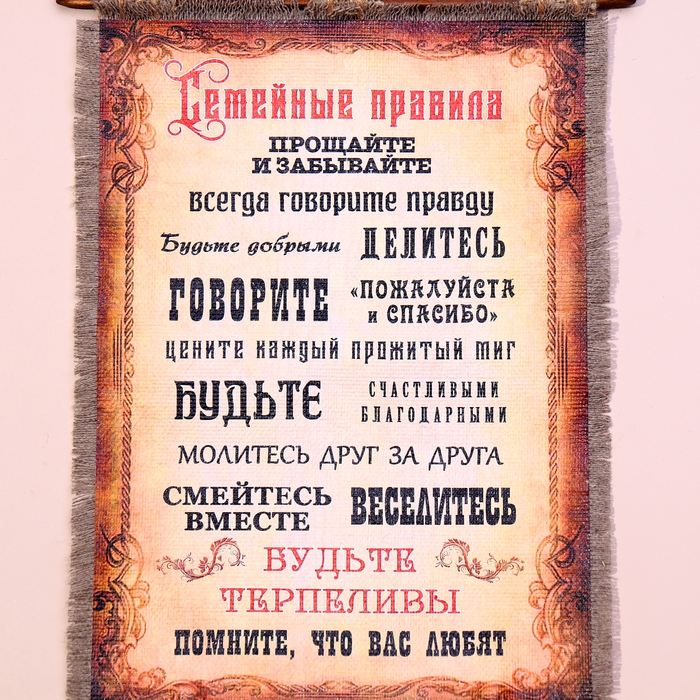 Семейные правила
ПРОЩАЙТЕ
И ЗАБЫВАЙТЕ
всегда говорите правду
Будьте добрыми ДЕЛИТЕСЬ
ГОВОРИТЕ «ПОЖАЛУЙСТА
и СПАСИБО»
цените каждый прожитый миг
БУДЬТЕ СЧАСТЛИВЫМИ
БЛАГОДАРНЫМИ
МОЛИТЕСЬ ДРУГ ЗА ДРУГА
СМЕЙТЕСЬ
ВМЕСТЕ ВЕСЕЛИТЕСЬ
БУДЬТЕ
ТЕРПЕЛИВЫ
ПОМНИТЕ, ЧТО ВАС ЛЮБЯТ